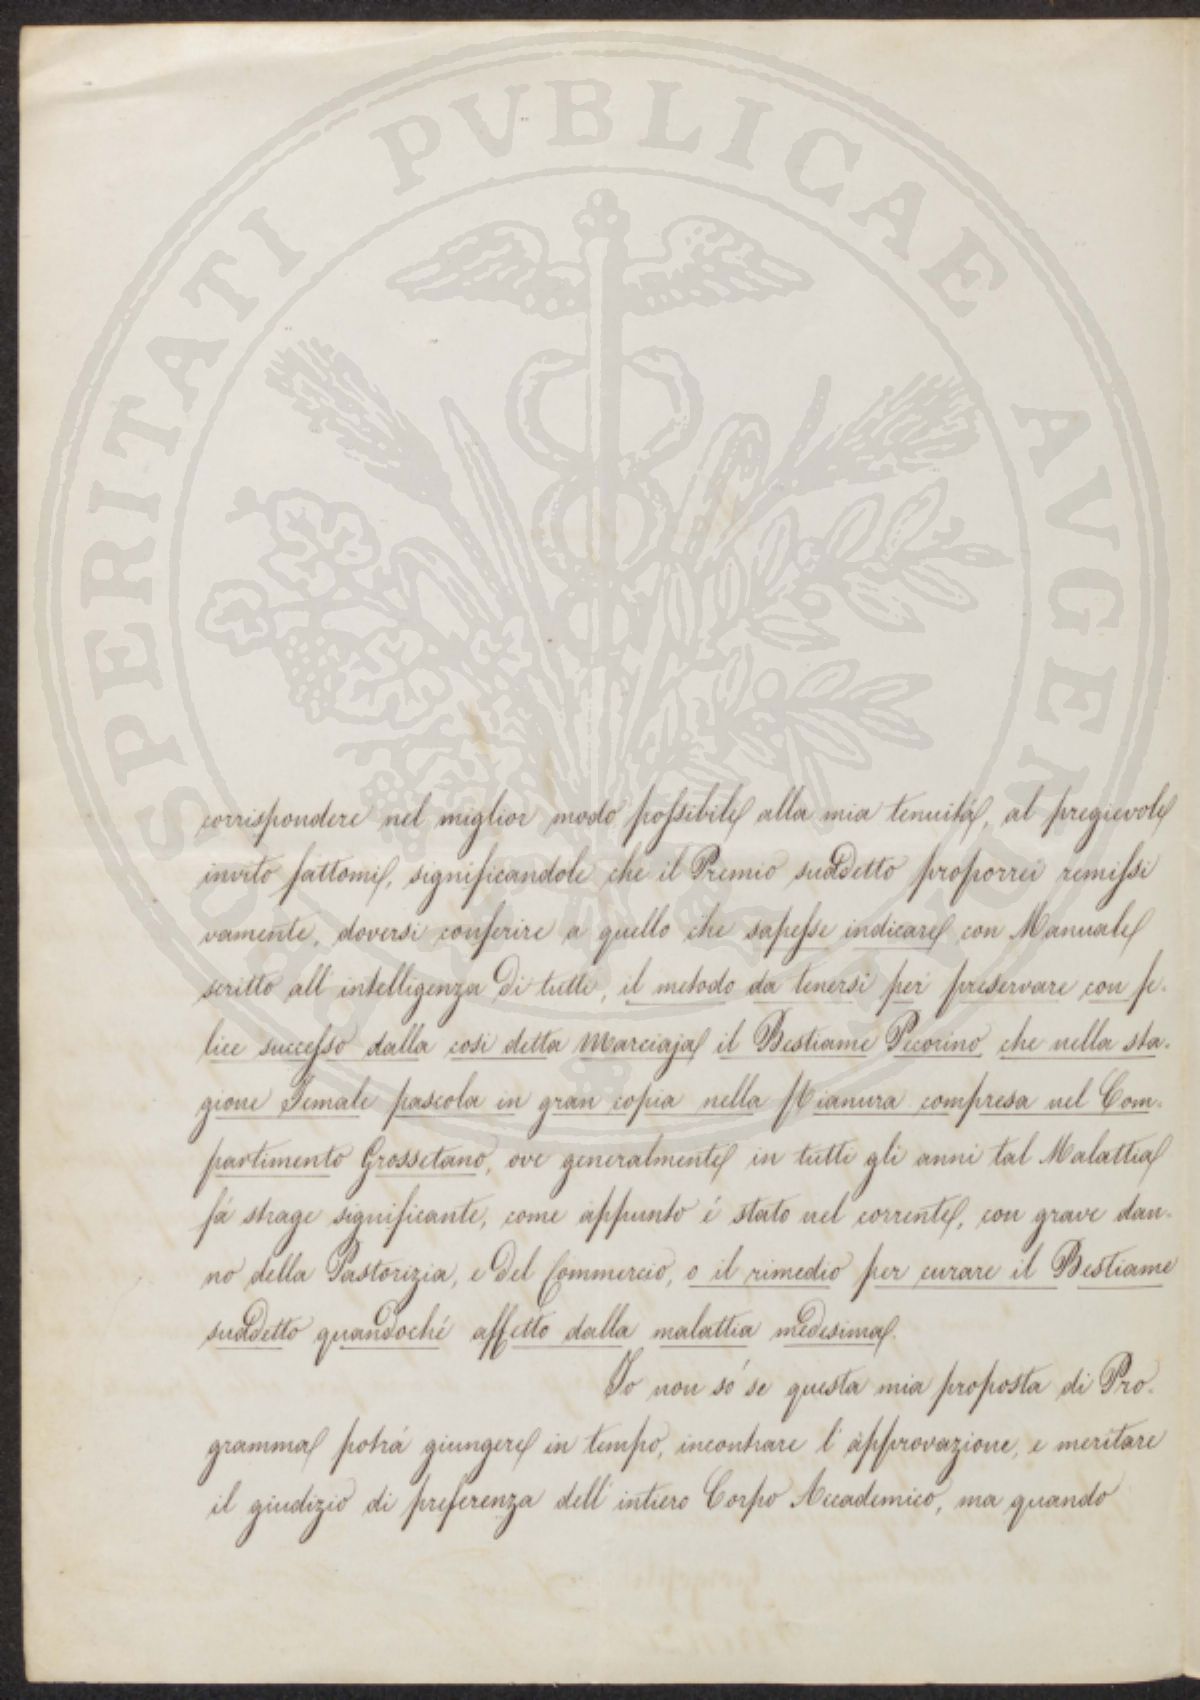 PROSPERITATI PVBLICAE AVGENDAE
corrispondere nel miglior modo possibile alla mia tenuità, al pregievole
invito fattomi, significandole che il Premio suddetto proporrei remissi
vamente, doversi conferire a quello che sapesse indicare con Manuale
scritto all'intelligenza di tutti, il metodo da tenersi per preservare con fe-
lice successo dalla così detta Marciaja il Bestiame Pecorino, che nella sta-
gione Jemale pascola in gran copia nella Pianura compresa nel Com-
partimento Grossetano, ove generalmente in tutti gli anni tal Malattia
fà strage significante, come appunto é stato nel corrente, con grave dan-
no della Pastorizia, e del Commercio, o il rimedio per curare il Bestiame
suddetto quandoché affetto dalla malattia medesima.
Io non só se questa mia proposta di Pro-
gramma potrá giungere in tempo, incontrare l'approvazione, e meritare
il giudizio di preferenza dell'intiero Corpo Accademico, ma quando